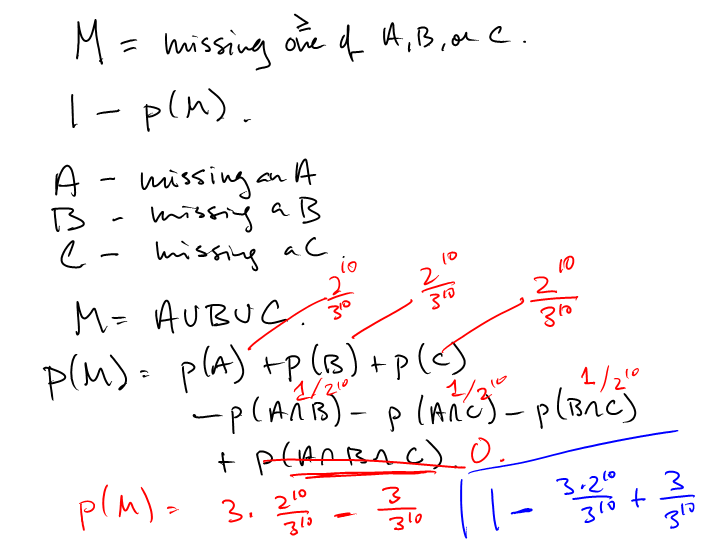 M = missing ≥ one of A, B, or C.
1 - p(M).
A - missing an A
B - missing a B
C - missing a C.
2^10/3^10 2^10/3^10 2^10/3^10
M = A∪B∪C.
p(M) = p(A) + p(B) + p(C)
1/2^10 1/2^10 1/2^10
- p(A∩B) - p(A∩C) - p(B∩C)
+ p(A∩B∩C) 0.
p(M) = 3 · 2^10/3^10 - 3/3^10 | 1 - 3·2^10/3^10 + 3/3^10